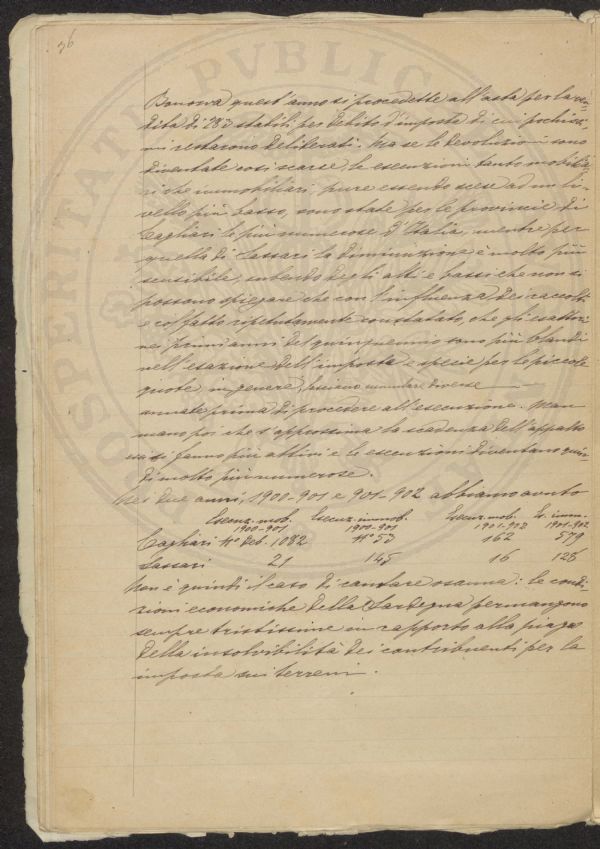 36
Bonorva quest'anno si procedette all'asta per la ven-
dita di 283 stabili per debito d'imposta di cui pochissi-
mi restarono deliberati. Ma se le devoluzioni sono
diventate così scarse, le esecuzioni tanto mobilia-
ri che immobiliari, pure essendo scese ad un li-
vello più basso, sono state per le provincie di
Cagliari le più numerose d'Italia, mentre per
quella di Sassari la diminuzione è molto più
sensibile, subendo degli alti e bassi che non si
possono spiegare che con l'influenza dei raccolti
e col fatto ripetutamente constatato, che gli esattori
nei primi anni del quinquennio sono più blandi
nell'esazione dell'imposta e specie per le piccole
quote, in genere, lasciano cumulare diverse
annate prima di procedere all'esecuzione. Man
mano poi che s'approssima la scadenza dell'appalto
essi si fanno più attivi e le esecuzioni diventano quin-
di molto più numerose.
Nei due anni, 1900-901 e 901-902 abbiamo avuto
Esecuz. mob. Esecuz. immob. Esecuz. mob. Es. imm.
1900-901 1900-901 1901-902 1901-902
Cagliari N° Deb. 1082 N° 53 162 579
Sassari 21 145 16 126
Non è quindi il caso di cantare osanna: le condi-
zioni economiche della Sardegna permangono
sempre tristissime in rapporto alla piaga
della insolvibilità dei contribuenti per la
imposta sui terreni.
PROSPERITATI PVBLICAE